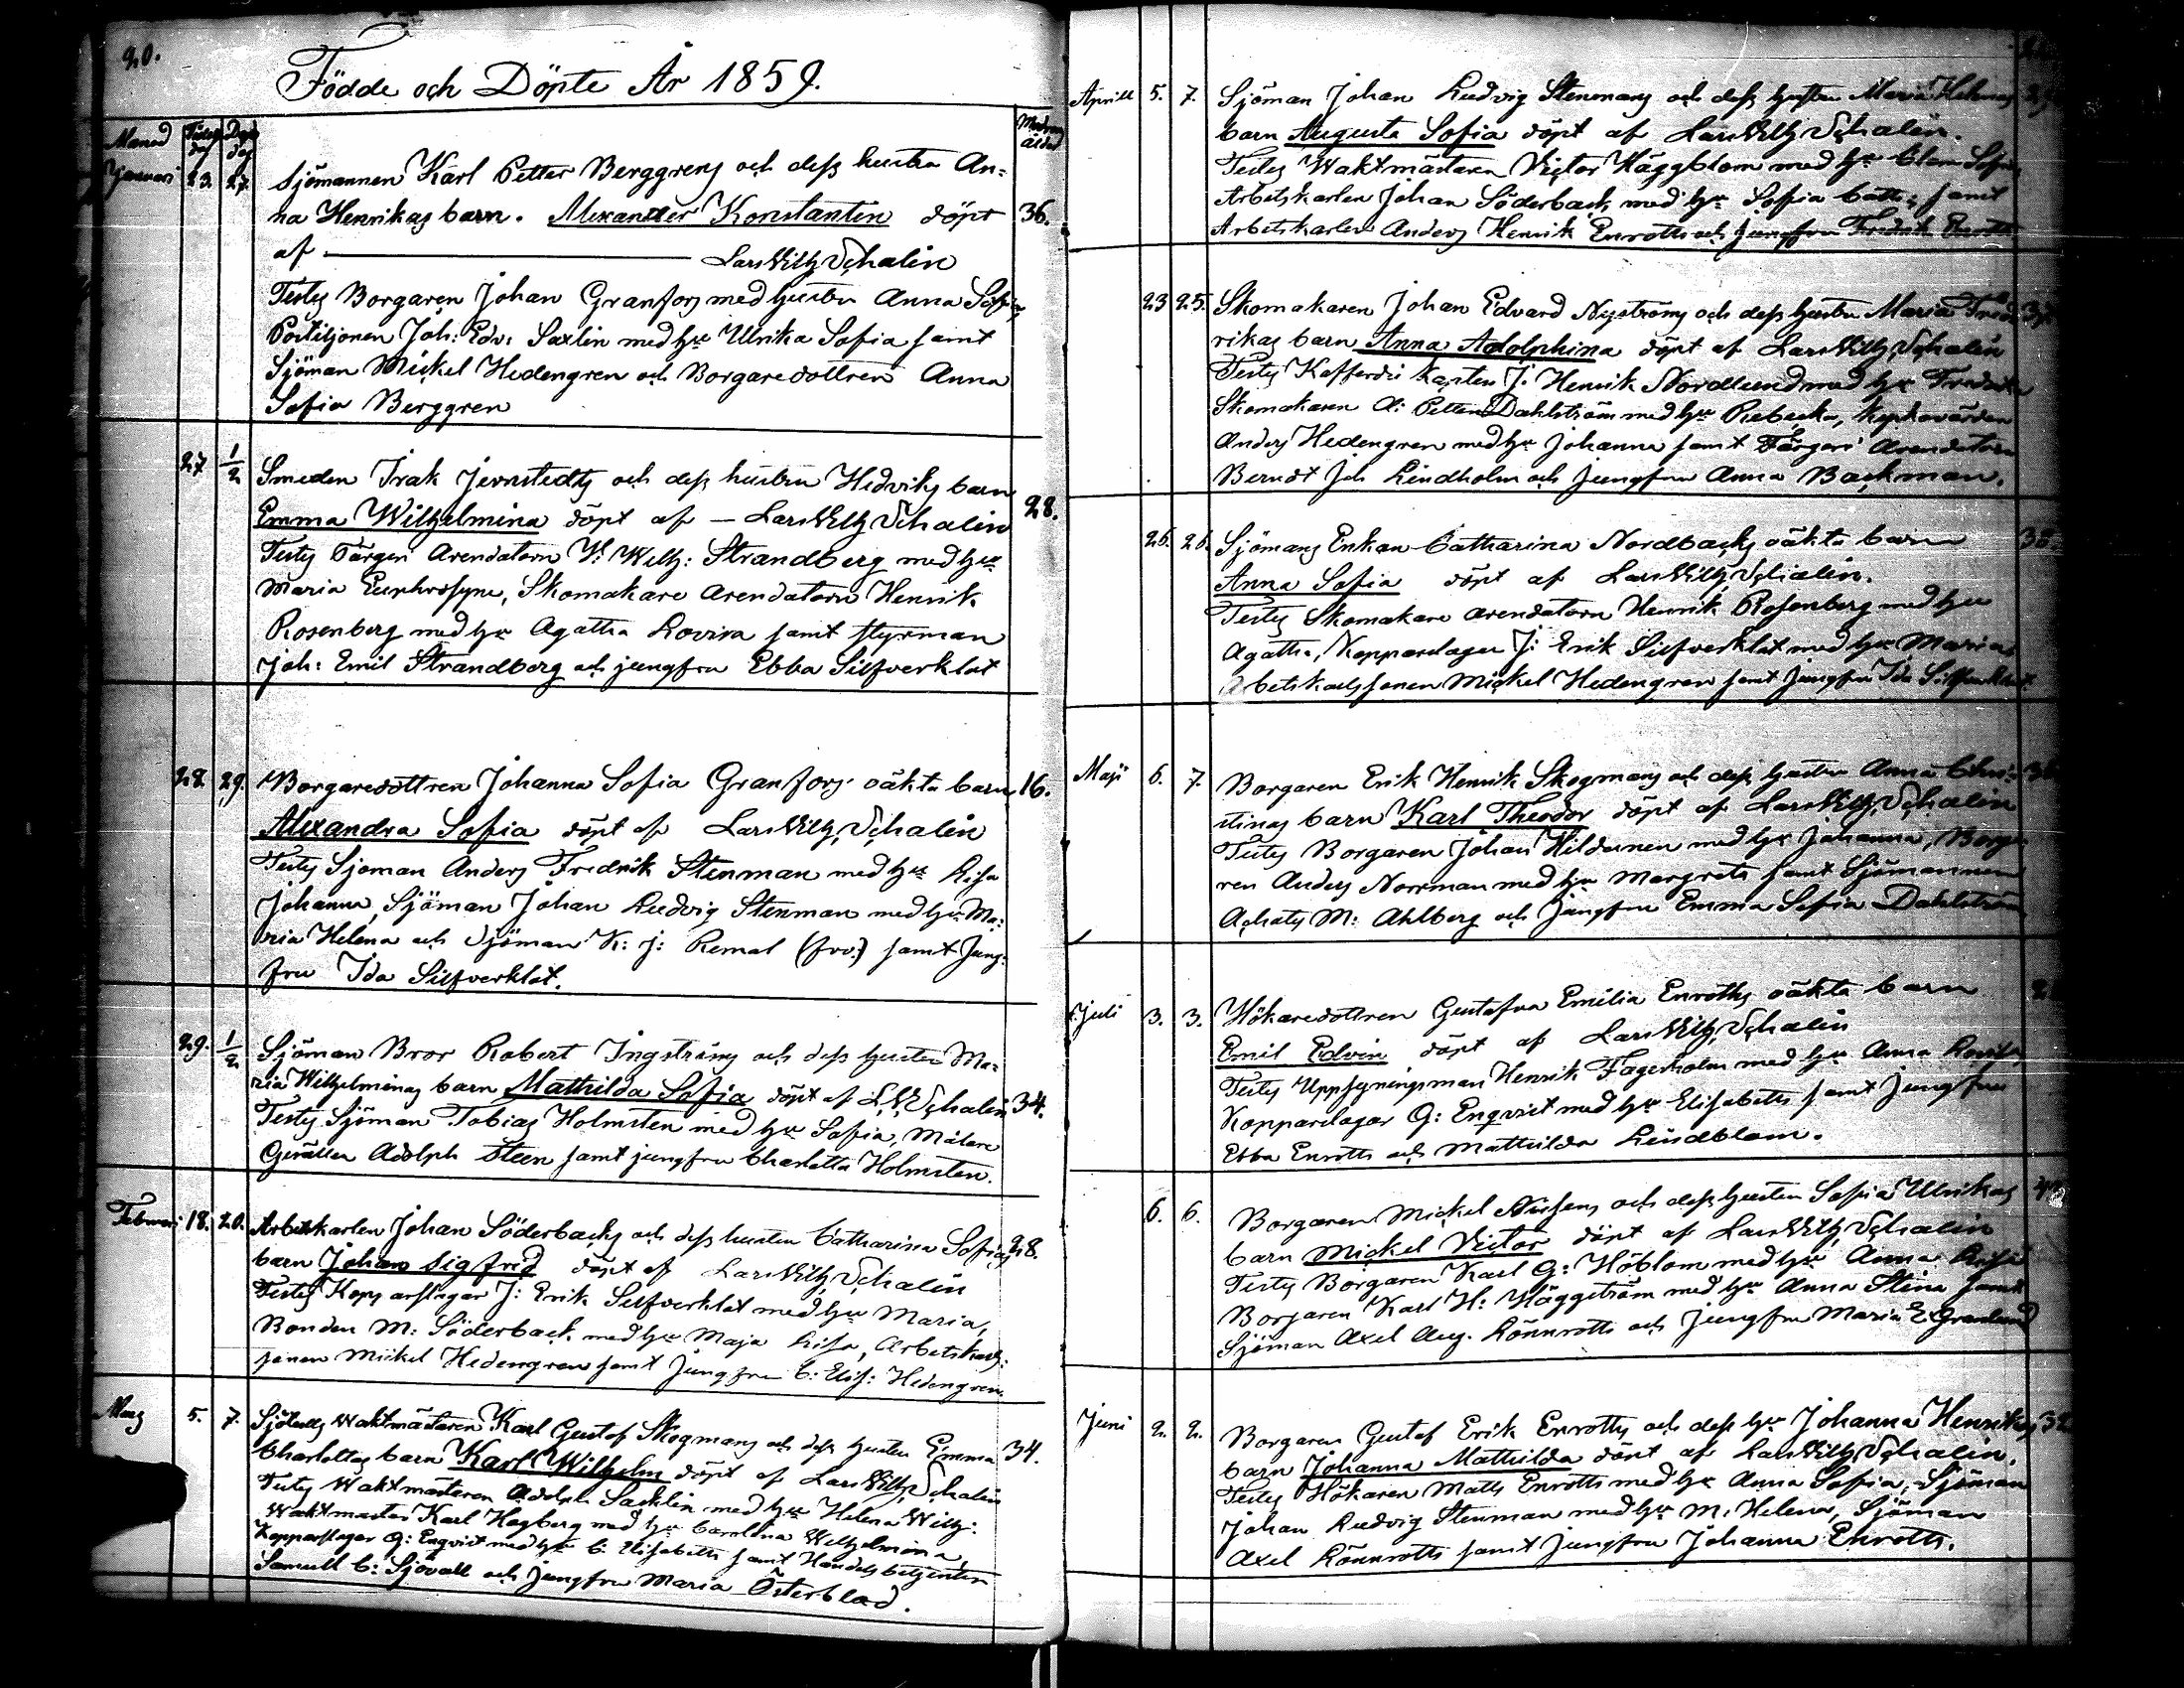 20.
Födde och Döpte År 1859.
Månad Födelse dag Dop dag Modrens ålder
Januari 23. 27. Sjömannen Karl Petter Berggrens och dess hustru An-
na Henrikas barn. Alexander Konstantin döpt 36.
af Lars Vilh. Schalin
Testes Borgaren Johan Granfors med hustru Anna Sofia,
Postiljonen Joh: Edv: Saxlin med hu Ulrika Sofia samt
Sjöman Mickel Hedengren och Borgaredottren Anna
Sofia Berggren
27 1/2 Smeden Isak Jernstedts och dess hustru Hedviks barn
Emma Wilhelmina döpt af — Lars Vilh Schalin 28.
Testes Färgeri Arendatorn V: Wilh: Strandberg med hu
Maria Euphrosyne, Skomakare Arendatorn Henrik
Rosenberg med hu Agatha Lovisa samt Styrman
Joh: Emil Strandberg och jungfru Ebba Silfverklot
28. 29. Borgaredottren Johanna Sofia Granfors oäkta barn 16.
Alexandra Sofia döpt af Lars Vilh. Schalin
Testes Sjöman Anders Fredrik Stenman med hu Lisa
Johanna, Sjöman Johan Ludvig Stenman med hu Ma-
ria Helena och Sjöman K: J: Remal samt Jung-
fru Ida Silfverklot.
29. 1/2 Sjöman Bror Robert Ingströms och dess hustru Ma-
ria Wilhelminas barn Mathilda Sofia döpt af L.V. Schalin 34.
Testes Sjöman Tobias Holmsten med hu Sofia, Målare
Gesällen Adolph Steen samt jungfru Charlotta Holmsten.
Februari 18. 20. Arbetskarlen Johan Söderbacks och dess hustru Catharina Sofias 28.
barn Johan Sigfrid döpt af Lars Vilh. Schalin
Testes Kopparslagar J: Erik Silfverklot med hu Maria,
Bonden M: Söderback med hu Maja Lisa, Arbetskarls-
sonen Mickel Hedengren samt Jungfru C: Elis: Hedengren.
Mars 5. 7. Sjötulls Waktmästaren Karl Gustaf Skogmans och dess hustru Emma 34.
Charlottas barn Karl Wilhelm döpt af Lars Vilh. Schalin
Testes Waktmästaren Adolph Sacklin med hu Helena Wilh:
Waktmäster Karl Hagberg med hu Carolina Wilhelmina,
Kopparslagar G: Enqvist med hu C: Elisabeth samt Handelsbetjenten
Samuell C: Sjövall och Jungfru Maria Österblad.
Aprill 5. 7. Sjöman Johan Ludvig Stenmans och dess hustru Maria Helenas
barn Augusta Sofia döpt af Lars Vilh Schalin.
Testes Waktmästaren Victor Häggblom med hu Clem Sofia,
Arbetskarlen Johan Söderback med hu Sofia Cath: samt
Arbetskarlen Anders Henrik Enroth och Jungfru Fredrik Enroth.
23 25. Skomakaren Johan Edvard Nyströms och dess hustru Maria Fred-
rikas barn Anna Adolphina döpt af Lars Vilh. Schalin
Testes Kofferdi Kapten J: Henrik Nordlund med hu Fredrika
Skomakaren A: Petter Dahlström med hu Rebecka,
Anders Hedengren med hu Johanna samt Färgeri Arendatorn
Berndt Joh Lindholm och Jungfru Anna Backman.
26. 26. Sjömans Enkan Catharina Nordbacks oäkta barn
Anna Sofia döpt af Lars Vilh. Schalin.
Testes Skomakare Arendatorn Henrik Rosenberg med hu
Agatha, Kopparslagar J: Erik Silfverklot med hu Maria
Arbetskarlssonen Mickel Hedengren samt Jungfru Ida Silfverklot
Maji 6. 7. Borgaren Erik Henrik Skogmans och dess hustru Anna Chri-
stinas barn Karl Theodor döpt af Lars Vilh. Schalin
Testes Borgaren Johan Hildeman med hu Johanna, Borga-
ren Anders Norrman med hu Margreta samt Sjömannen
Achates M: Ahlberg och Jungfru Emma Sofia Dahlström
Juli 3. 3. Hökaredottren Gustafva Emilia Enroths oäkta barn
Emil Edvin döpt af Lars Vilh. Schalin
Testes Uppsyningsman Henrik Fagerholm med hu Anna Lovisa,
Kopparslagar G: Enqvist med hu Elisabeth samt Jungfru
Ebba Enroth och Mathilda Lindblom.
6. 6. Borgaren Mickel och dess hustru Sofia Ulrikas
barn Mickel Victor döpt af Lars Vilh. Schalin
Testes Borgaren Karl G: Höblom med hu Anna Lisa
Borgaren Karl H: Häggström med hu Anna Stina samt
Sjöman Axel Aug. Lönnroth och Jungfru Maria E. Granlund
Juni 2. 2. Borgaren Gustaf Erik Enroths och dess hu Johanna Henrikas 32
barn Johanna Mathilda döpt af Lars Vilh. Schalin.
Testes Hökaren Matts Enroth med hu Anna Sofia, Sjöman
Johan Ludvig Stenman med hu M: Helena, Sjöman
Axel Lönnroth samt Jungfru Johanna Enroth.